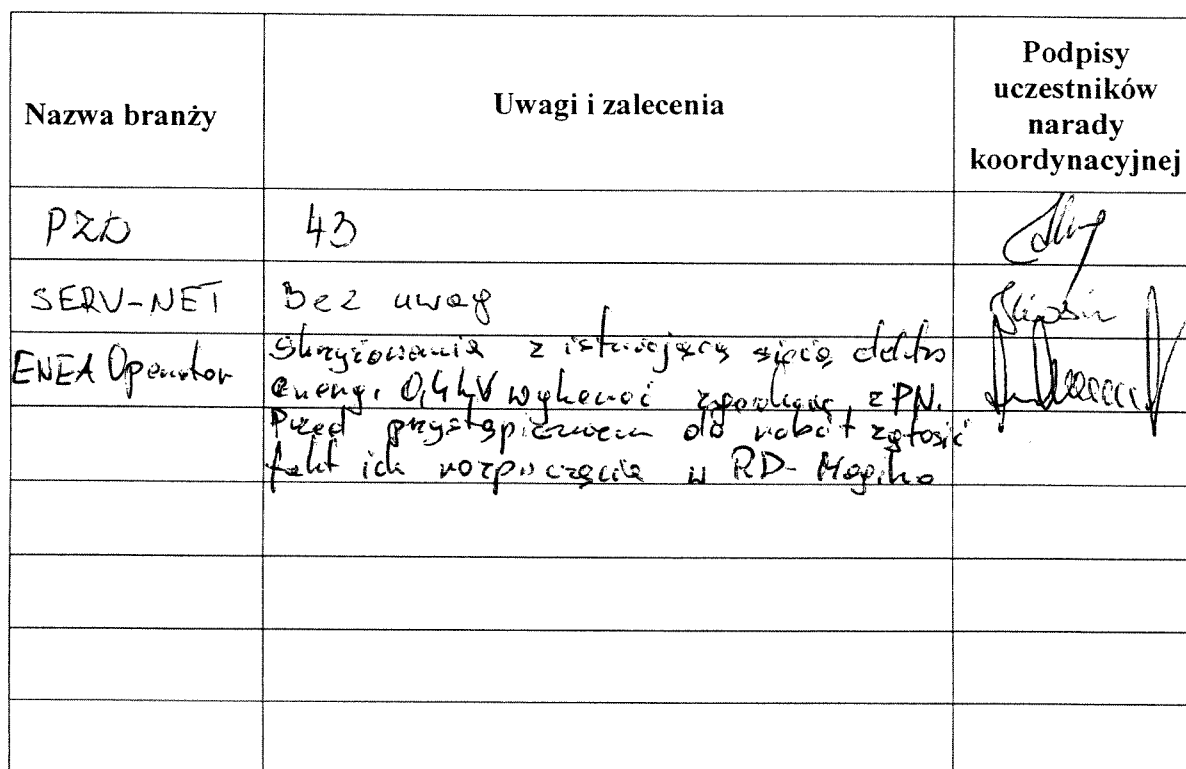 Nazwa branży
Uwagi i zalecenia
Podpisy
uczestników
narady
koordynacyjnej
PZD
SERV-NET Bez uwag
ENEA Operator
Skrzyżowania z istniejącą siecią elektro
energ. 0,4kV wykonać zgodnie z PN.
Przed przystąpieniem do robót zgłosić
fakt ich rozpoczęcia w RD-